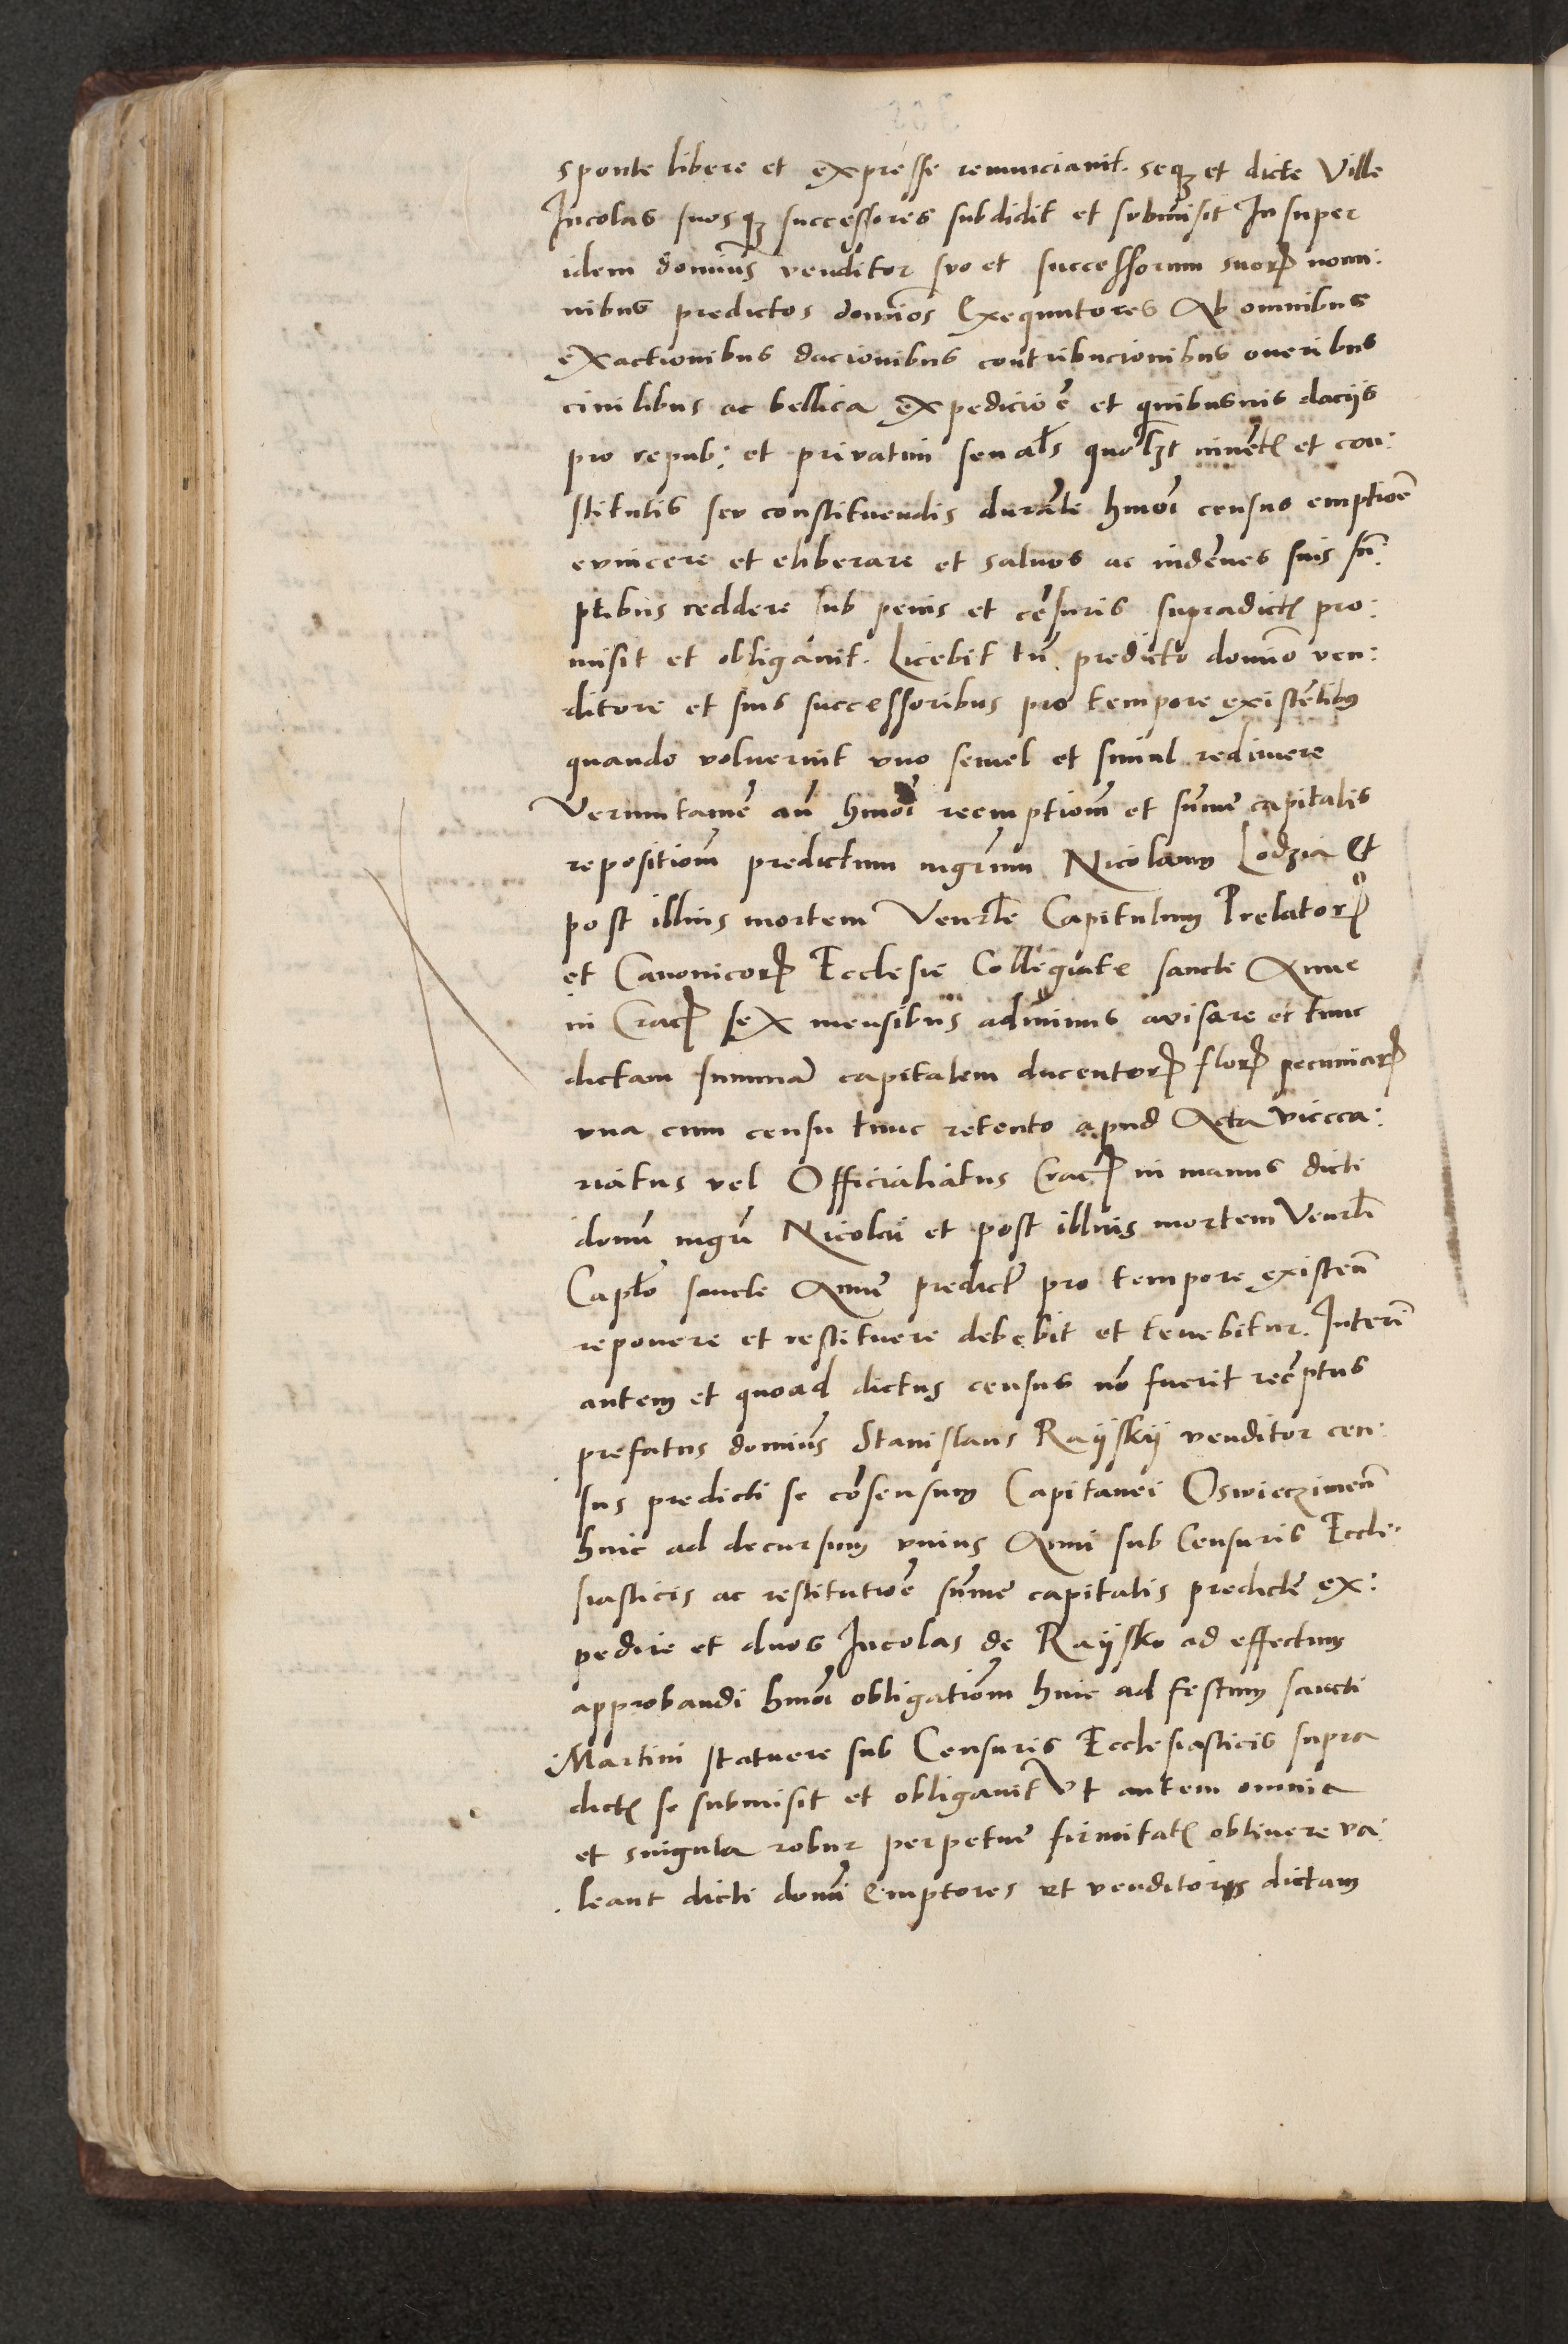 sponte libere et expresse renunciavit. seqȝ et dicte Ville
Incolas suosqȝ successores subdidit et submisit Insuper
idem dominus venditor suo et successorum suorꝝ nomi:
nibus predictos dominos Exequutores Ab omnibus
exactionibus dacionibus contribucionibus oneribus
civilibus ac bellica expedicioē et quibusvis daciis
pro repub: et privatim seu al's quolȝt et con:
stitutis seu constituendis durāte hmōi census emptioē
evincere et eliberare et salvos ac indēnes suis sū:
ptibus reddere sub penis et cēsuris supradictꝭ pro:
misit et obligavit. Licebit tn̄ predicto domino ven:
ditore et suis successoribus pro tempore existētibus
quando voluerint uno semel et simul redimere
Veruntamē an̄ hmōi reemptionem et sūme capitalis
repositionem predictum mgrum Nicolaum Lodzia Et
post illius mortem Venrłe Capitulum Prelatorꝝ
et Canonicorꝝ Ecclesie Collegiate sancte Anne
in Cracꝭ sex mensibus adminus avisare et tunc
dictam summā capitalem ducentorꝝ florꝝ pecuniarꝝ
una cum censu tunc retento apud Acta viccca:
riatus vel Officialiatus Cracꝭ in manus dicti
domī mgrī Nicolai et post illius mortem Venrłi
Capłi sancte Anne predictꝭ pro tempore existeñ
reponere et restituere debebit et tenebitur. Interī
autem et quoad dictus census nō fuerit reēptus
prefatus dominus Stanislaus Rayskij venditor cen:
sus predicti se cōsensum Capitanei Oswieczimeñ
hinc ad decursum unius Anni sub Censuris Eccle:
siasticis ac restitutioē sūme capitalis predicte ex:
pedire et duos Incolas de Raysko ad effectum
approbandi hmōi obligationem hinc ad festum sancti
Martini statuere sub Censuris Ecclesiasticis supra
dictꝭ se submisit et obligavit Ut autem omnia
et singula robur perpetue firmitatꝭ obtinere va:
leant dicti domī Emptores et venditores dictam